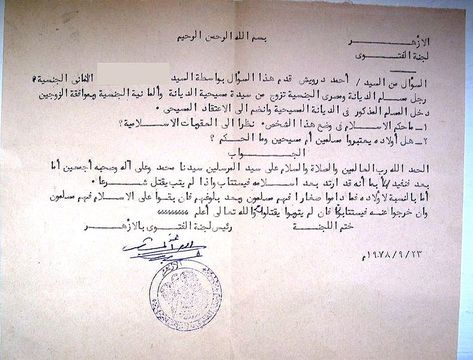 بسم الله الرحمن الرحيم
الازهر
لجنة الفتوى
السؤال من السيد / أحمد درويش قدم هذا السؤال بواسطة السيد الألمانى الجنسية
رجل مسلم الديانة ومصرى الجنسية تزوج من سيدة مسيحية الديانة وألمانية الجنسية وبموافقة الزوجين
دخل المسلم المذكور فى الديانة المسيحية وانضم الى الاعتقاد المسيحى .
١ــ ماحكم الاسلام فى وضع هذا الشخص . نظرا الى العقوبات الاسلامية ؟
٢ــ هل أولاده يعتبروا مسلمين أم مسيحين وما الحكم ؟
الجواب
الحمد الله رب العالمين والصلاة والسلام على سيد المرسلين سيدنا محمد وعلى آله وصحبه أجمعين أما
بعد فنفيد بأنه قد ارتد بعد اسلامه فيستتاب واذا لم يتب يقتل شرعا .
أما بالنسبة لأولاده فما داموا صغارا فهم مسلمون وبعد بلوغهم فان بقوا على الاسلام فهم مسلمون
وان خرجوا عنه فيستتابوا فان لم يتوبوا يقتلوا والله تعالى أعلم
ختم اللجنة رئيس لجنة الفتوى بالأزهر
١٩٧٨/٩/٢٣م